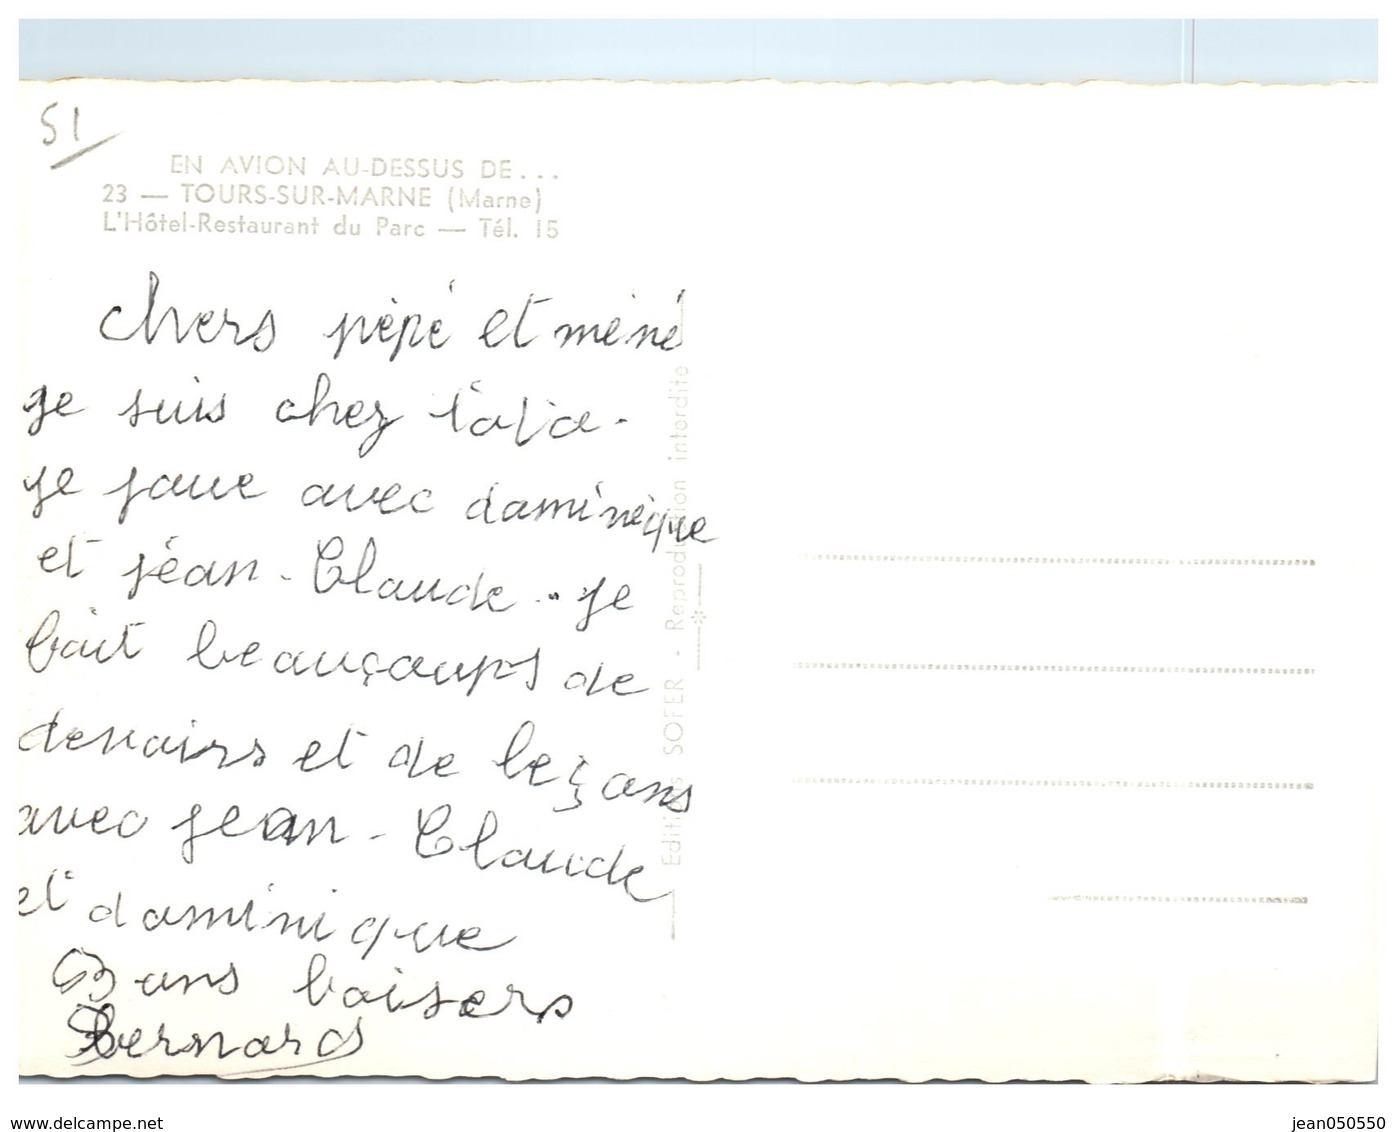 51
EN AVION AU-DESSUS DE...
23 — TOURS-SUR-MARNE (Marne)
L'Hôtel-Restaurant du Parc — Tél. 15
Chers pèpé et mémé
je suis chez tata.
je joue avec dominique
et jéan-Claude. je
fait beauçoups de
devoirs et de leçons
avec jean-Claude
et dominique
Bons baisers
Bernard
Editions SOFER - Reproduction interdite
www.delcampe.net
jean050550